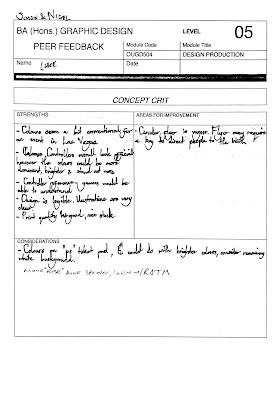 Simon & Nigel
BA (Hons.) GRAPHIC DESIGN
LEVEL 05
PEER FEEDBACK
Module Code
Module Title
OUGD504
DESIGN PRODUCTION
Name
Date
CONCEPT CRIT
STRENGTHS
AREAS FOR IMPROVEMENT
- Colours seem a bit conventional for
an event in Las Vegas
- Colours, Controllers overall look
however the colours could be more
dominant, brighter & stand out more
- Controller relevant - gamers would be
able to understand
- Design is legible. Illustrations are very
clear
- Print quality feels good, nice stock
- Circular flyer is unique. Flyer may require
a key to direct people to the booth
CONSIDERATIONS
- Colours on "pc" ticket good, could do with brighter colours, consider removing
white background.